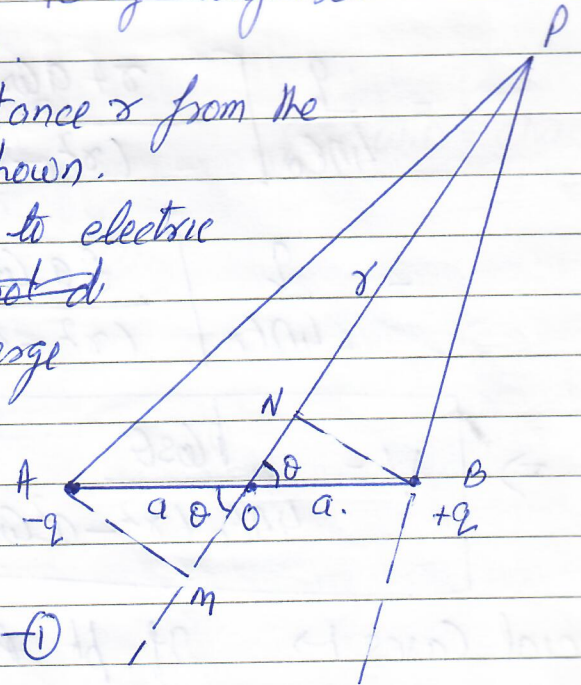 P
tance r from the
hown.
to electric
erge
r
N
θ
A
B
a
θ
O
a.
-q
+q
M
-①